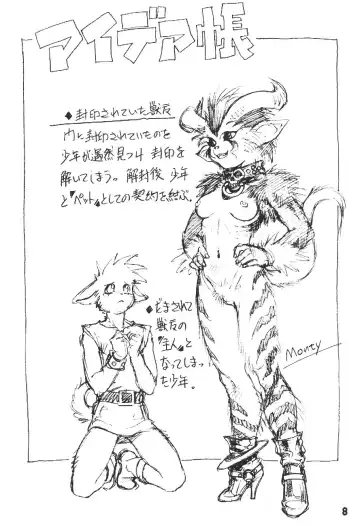 アイデア帳
◆封印されていた獣友
門に封印されていたのを
少年が偶然見つけ 封印を
解いてしまう。解封後 少年
と『ペット』としての契約を結ぶ。
◆だまされて
獣友の
『主人』と
なってしまっ
た少年。
Monty
8